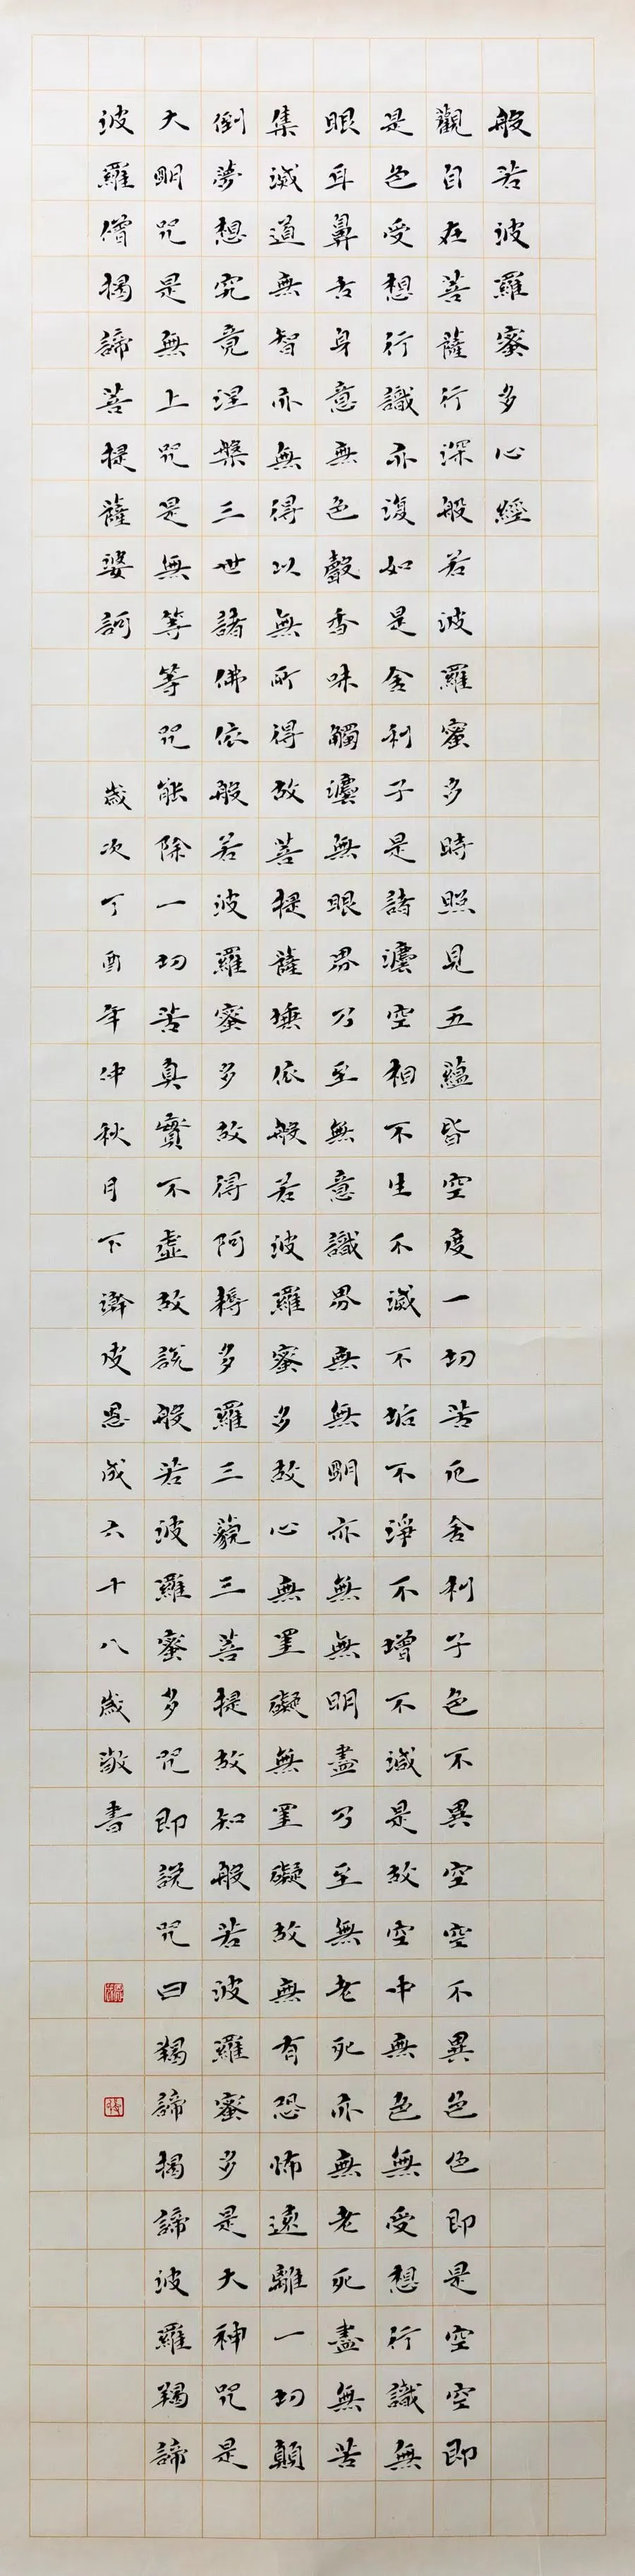 般若波羅蜜多心經
觀自在菩薩行深般若波羅蜜多時照見五蘊皆空度一切苦厄舍利子色不異空空不異色色即是空空即
是色受想行識亦復如是舍利子是諸灋空相不生不滅不垢不淨不增不減是故空中無色無受想行識無
眼耳鼻舌身意無色聲香味觸灋無眼界乃至無意識界無無明亦無無明盡乃至無老死亦無老死盡無苦
集滅道無智亦無得以無所得故菩提薩埵依般若波羅蜜多故心無罣礙無罣礙故無有恐怖遠離一切顛
倒夢想究竟涅槃三世諸佛依般若波羅蜜多故得阿耨多羅三藐三菩提故知般若波羅蜜多是大神咒是
大明咒是無上咒是無等等咒能除一切苦真實不虛故說般若波羅蜜多咒即說咒曰揭諦揭諦波羅揭諦
波羅僧揭諦菩提薩婆訶
歲次丁酉年仲秋月下澣皮恩成六十八歲敬書